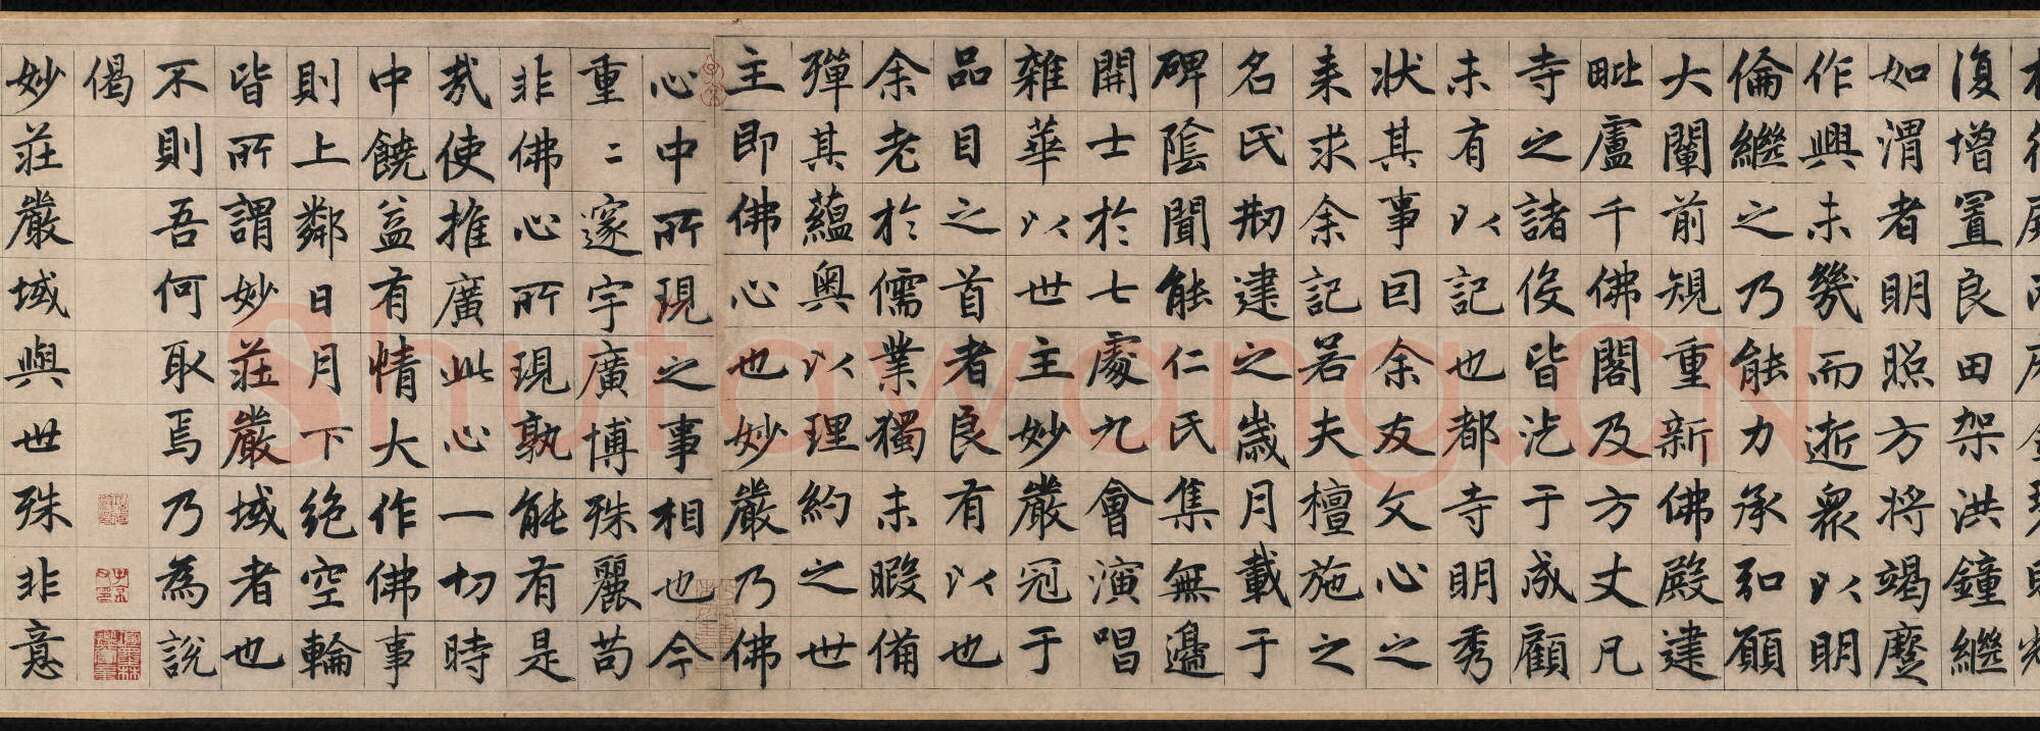 復增置良田架洪鐘繼
如渭者明照方將竭蹷
作興未幾而逝衆以明
倫繼之乃能力承弘願
大闡前規重新佛殿建
毗盧千佛閣及方丈凡
寺之諸役皆汔于成顧
未有以記也都寺明秀
狀其事因余友文心之
来求余記若夫檀施之
名氏刱建之歲月載于
碑陰聞能仁氏集無邊
開士於七處九會演唱
雜華以世主妙嚴冠于
品目之首者良有以也
余老於儒業獨未暇備
殫其蘊奥以理約之世
主即佛心也妙嚴乃佛
心中所現之事相也今
重二邃宇廣博殊麗苟
非佛心所現孰能有是
哉使推廣此心一切時
中饒益有情大作佛事
則上鄰日月下絕空輪
皆所謂妙莊嚴域者也
不則吾何取焉乃為說
偈
妙莊嚴域與世殊非意
Shufawang.CN